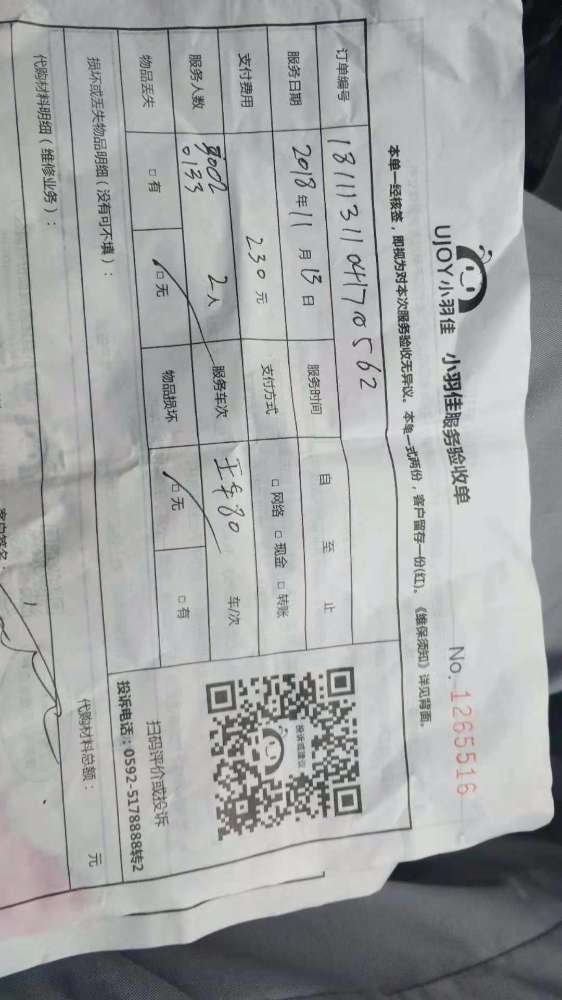 UJOY小羽佳 小羽佳服务验收单
No. 1265516
本单一经核签，即视为对本次服务验收无异议。本单一式两份，客户留存一份(红)。《维保须知》详见背面。
订单编号 181113110417 0562
服务日期 2018年11月13日 服务时间 自 至 止
支付费用 230元 支付方式 □网络 □现金 □转账
服务人数 0133 2人 服务车次 车/次
物品丢失 □有 □无 物品损坏 □无 □有
损坏或丢失物品明细（没有可不填）：
代购材料明细（维修业务）：
代购材料总额： 元
投诉或建议
扫码评价或投诉
投诉电话：0592-5178888转2
客户签名：